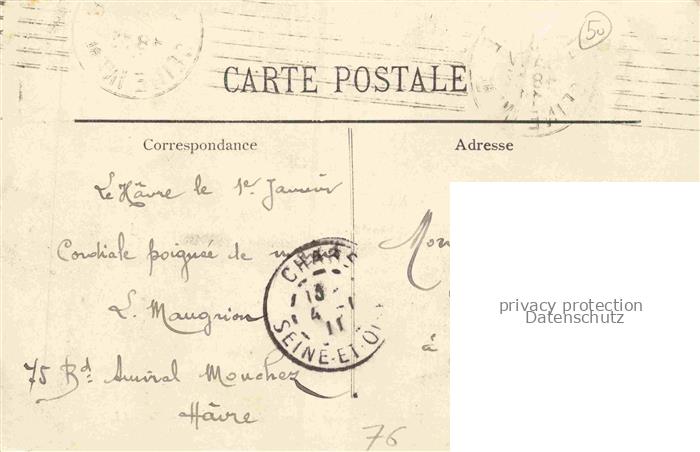 50
CARTE POSTALE
Correspondance
Adresse
Le Hâvre le 1er Janvier
Cordiale poignée de
L. Maugrion
75 Bd. Amiral Mouchez
Hâvre
CHARS
13
4 - 1
11
SEINE-ET-O
Mon
à
privacy protection
Datenschutz
76